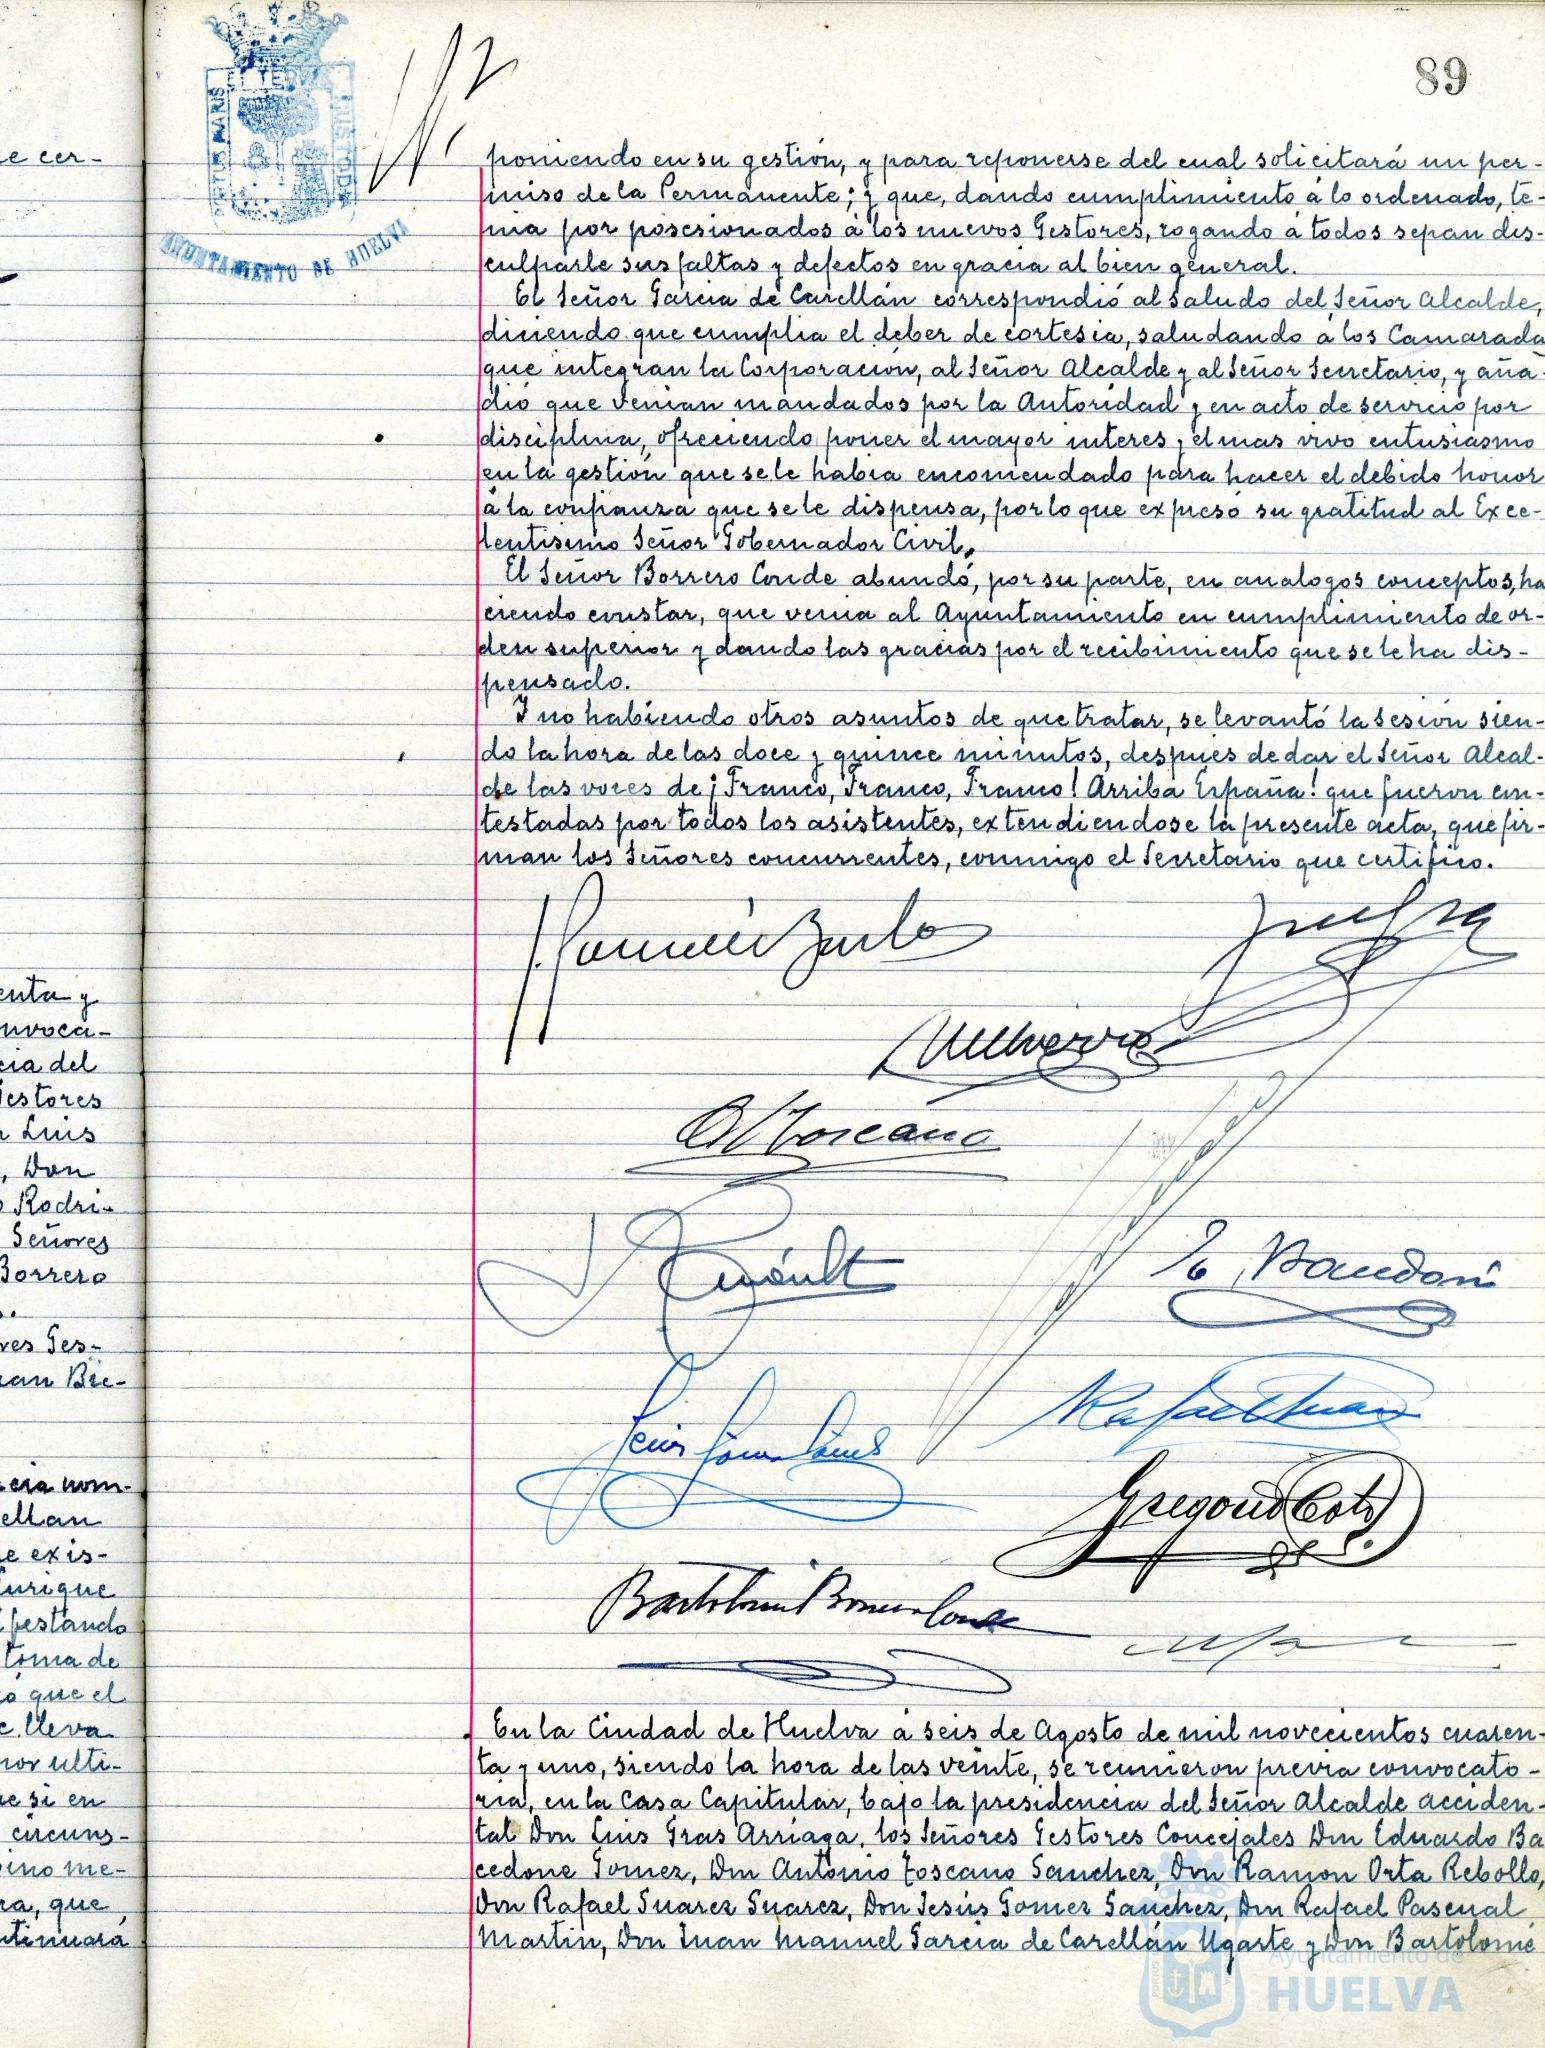 89
e cer-
enta y
nvoca-
cia del
Gestores
n Luis
, Don
o Rodri-
Señores
Borrero
res Ges-
uan Bte-
cia nom-
ellan
ue exis-
Enrique
ifestando
toma de
có que el
e lleva
nor ulti-
ue si en
circuns-
sino me-
ra, que
ntinuará
PORTUS MARIS
ET TERRE
CUSTODIA
AYUNTAMIENTO DE HUELVA
poniendo en su gestión, y para reponerse del cual solicitará un per-
miso de la Permanente; y que, dando cumplimiento á lo ordenado, te-
nia por posesionados á los nuevos Gestores, rogando á todos sepan dis-
culparle sus faltas y defectos en gracia al bien general.
El Señor Garcia de Carellán correspondió al saludo del Señor Alcalde,
diciendo que cumplia el deber de cortesia, saludando á los Camarada
que integran la Corporación, al Señor Alcalde y al Señor Secretario, y aña-
dió que venian mandados por la Autoridad y en acto de servicio por
disciplina, ofreciendo poner el mayor interes y el mas vivo entusiasmo
en la gestión que se le habia encomendado para hacer el debido honor
á la confianza que se le dispensa, por lo que expresó su gratitud al Exce-
lentisimo Señor Gobernador Civil.
El Señor Borrero Conde abundó, por su parte, en analogos conceptos, ha
ciendo constar, que venia al Ayuntamiento en cumplimiento de or-
den superior y dando las gracias por el recibimiento que se le ha dis-
pensado.
Y no habiendo otros asuntos de que tratar, se levantó la sesión sien-
do la hora de las doce y quince minutos, después de dar el Señor Alcal-
de las voces de ¡Franco, Franco, Franco! Arriba España! que fueron con-
testadas por todos los asistentes, extendiendose la presente acta, que fir-
man los Señores concurrentes, conmigo el Secretario que certifico.
A Toscano
Jesús Gomez Sanchez
Rafael Suarez
Gregorio
Bartolomé Borrero Conde
En la Ciudad de Huelva a seis de Agosto de mil novecientos cuaren-
ta y uno, siendo la hora de las veinte, se reunieron previa convocato-
ria, en la Casa Capitular, bajo la presidencia del Señor Alcalde acciden-
tal Don Luis Gras Arriaga, los Señores Gestores Concejales Don Eduardo Ba
cedone Gomez, Don Antonio Toscano Sanchez, Don Ramon Orta Rebollo,
Don Rafael Suarez Suarez, Don Jesús Gomez Sanchez, Don Rafael Pascual
Martin, Don Juan Manuel Garcia de Carellán Ugarte y Don Bartolomé
Ayuntamiento de
HUELVA